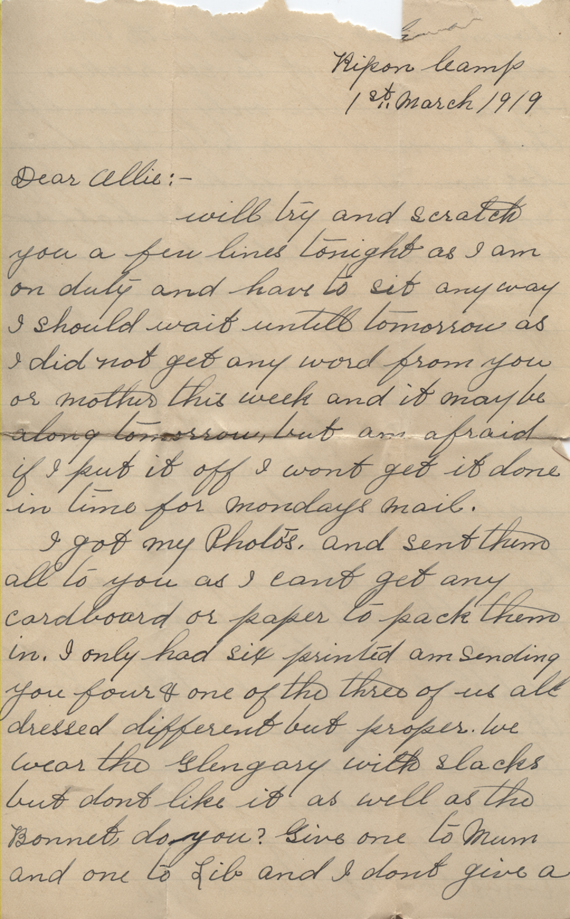 Ripon Camp
1st. March 1919
Dear Allie:-
will try and scratch
you a few lines tonight as I am
on duty and have to sit any way
I should wait untill tomorrow as
I did not get any word from you
or mother this week and it may be
along tomorrow, but am afraid
if I put it off I wont get it done
in time for mondays mail.
I got my Photos. and sent them
all to you as I cant get any
cardboard or paper to pack them
in. I only had six printed am sending
you four & one of the three of us all
dressed different but proper. We
wear the Glengary with slacks
but dont like it as well as the
Bonnet do you? Give one to Mum
and one to Lib and I dont give a